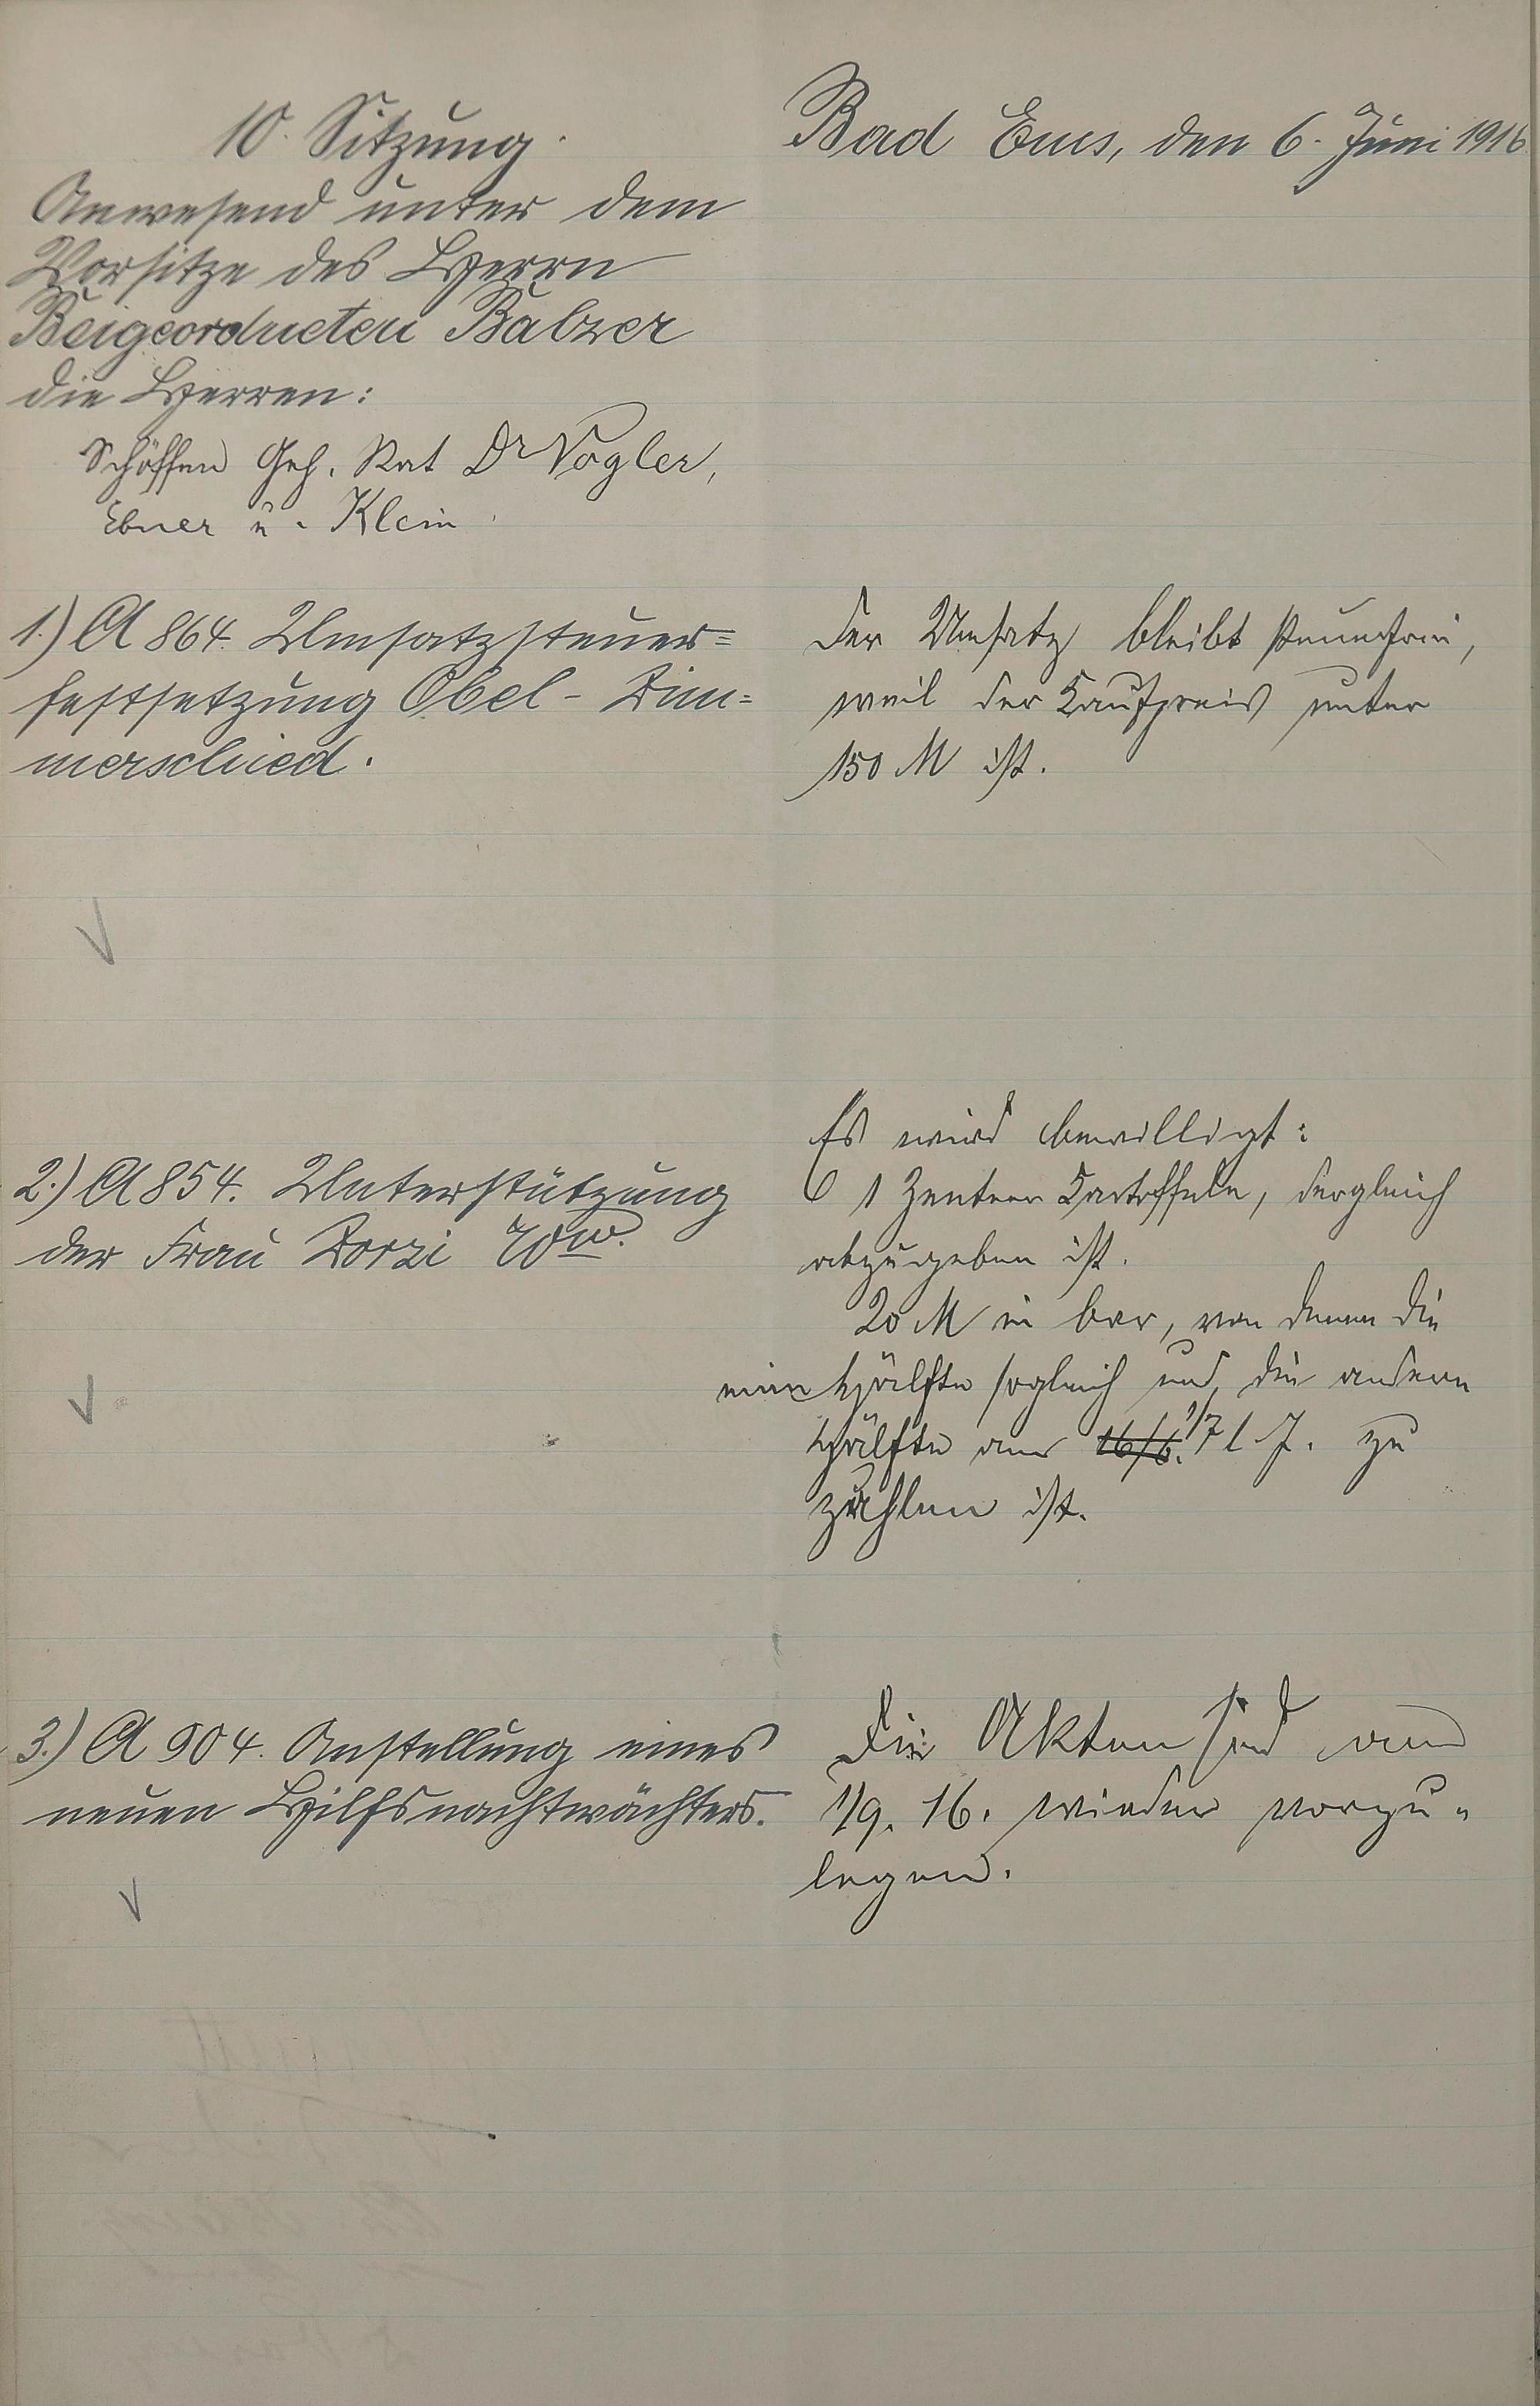 10. Sitzung.
Anwesend unter dem
Vorsitze des Herrn
Beigeordneten Balzer
die Herren:
Schöffen Geh. Rat Dr Vogler,
Ebner u. Klein.
Bad Ems, den 6. Juni 1916.
1.) A 864. Umsatzsteuer=
festsetzung Obel - Zim=
merschied.
Der Umsatz bleibt steuerfrei,
weil der Kaufpreis unter
150 M ist.
2.) A 854. Unterstützung
der Frau Zorzi Ww.
Es wird bewilligt:
1 Zentner Kartoffeln, der gleich
abzugeben ist.
20 M in bar, von denen die
eine Hälfte sogleich und die andere
Hälfte am 16/6. 1/7 l. J. zu
zahlen ist.
3.) A 904. Anstellung eines
neuen Hilfsnachtwächters.
Die Akten sind am
1/9. 16. wieder vorzu=
legen.